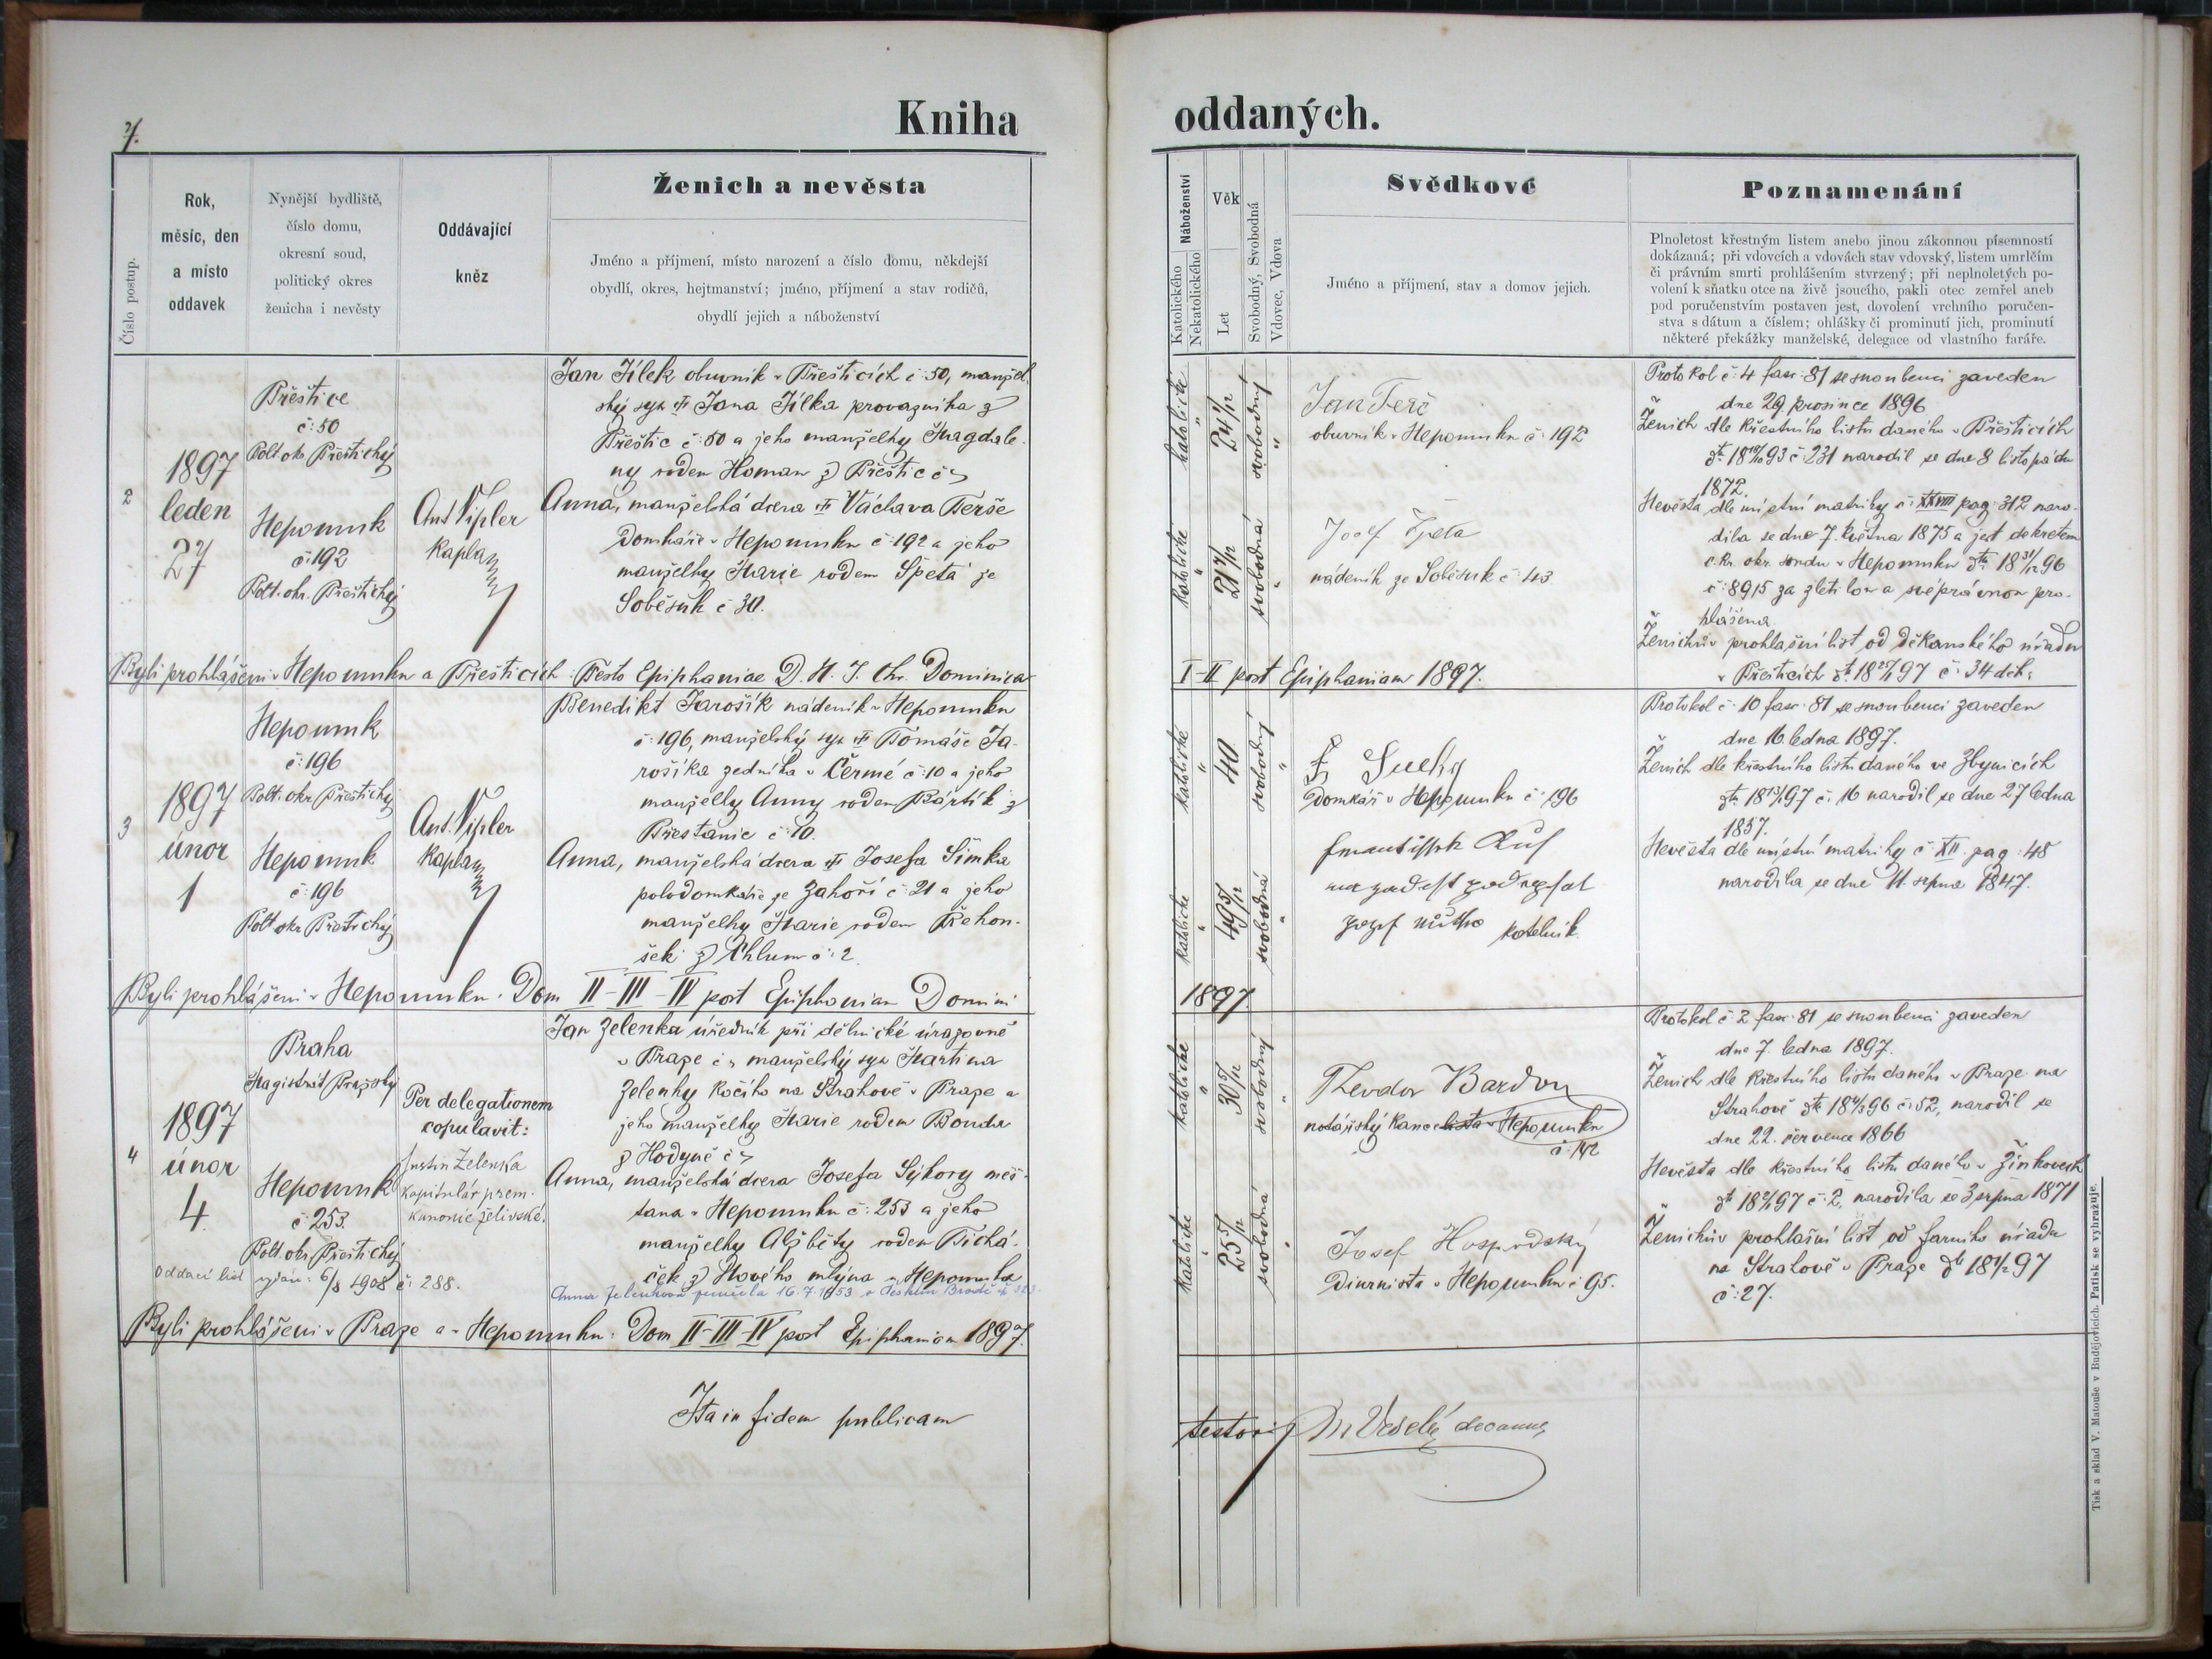 Kniha
oddaných.
Číslo postup.
Rok,
měsíc, den
a místo
oddavek
Nynější bydliště,
číslo domu,
okresní soud,
politický okres
ženicha i nevěsty
Oddávající
kněz
Ženich a nevěsta
Jméno a příjmení, místo narození a číslo domu, někdejší
obydlí, okres, hejtmanství; jméno, příjmení a stav rodičů,
obydlí jejich a náboženství
Náboženství
Katolického
Nekatolického
Věk
Let
Svobodný, Svobodná
Vdovec, Vdova
Svědkové
Jméno a příjmení, stav a domov jejich.
Poznamenání
Plnoletost křestným listem anebo jinou zákonnou písemností
dokázaná; při vdovcích a vdovách stav vdovský, listem umrlčím
či právním smrti prohlášením stvrzený; při neplnoletých po-
volení k sňatku otce na živě jsoucího, pakli otec zemřel aneb
pod poručenstvím postaven jest, dovolení vrchního poručen-
stva s dátum a číslem; ohlášky či prominutí jich, prominutí
některé překážky manželské, delegace od vlastního faráře.
2
1897
leden
27
Přeštice
č: 50
Polt. okr. Přeštický
Nepomuk
č: 192
Polt. okr. Přeštický
Ant. Vipler
kaplan
Jan Jílek obuvník v Přešticích č: 50, manžel.
ský syn Jana Jílka provazníka z
Přeštic č: 50 a jeho manželky Magdale-
ny rodem Homan z Přeštic č
Anna, manželská dcera Václava Terše
domkáře v Nepomuku č: 192 a jeho
manželky Marie rodem Špeta ze
Soběsuk č 30.
katolické
24
svobodný
katolické
21
svobodná
Jan Terč
obuvník v Nepomuku č: 192
Josef Špeta
nádeník ze Soběsuk č: 43
Protokol č: 4 fasc: 81 se snoubenci zaveden
dne 29 prosince 1896
Ženich dle křestního listu daného v Přešticích
č: 231 narodil se dne 8 listopádu
1872.
Nevěsta dle místní matriky č: XXVIII pag: 312 naro-
dila se dne 7. května 1875 a jest dekretem
c. kr. okr. soudu v Nepomuku
č: 8915 za zletilou a svéprávnou pro-
hlášena.
Ženichův prohlašní list od děkanského úřadu
v Přešticích č: 34 děk.
Byli prohlášeni v Nepomuku a Přešticích: Festo Epiphaniae D. N. J. Chr. Dominica
I-II post Epiphaniam 1897.
3
1897
únor
1
Nepomuk
č: 196
Polt. okr. Přeštický
Nepomuk
č: 196
Polt. okr. Přeštický
Ant. Vipler
kaplan
Benedikt Jarošík nádeník v Nepomuku
č: 196, manželský syn Tomáše Ja-
rošíka zedníka v Čermé č: 10 a jeho
manželky Anny rodem Bártík z
Přestanic č: 10.
Anna, manželská dcera Josefa Šimka
polodomkáře ze Zahoří č: 21 a jeho
manželky Marie rodem Řehou-
šek z Chlumu č: 2.
katolické
40
svobodný
katolické
49
svobodná
Suchý
domkář v Nepomuku č: 196
kostelník
Protokol č: 10 fasc: 81 se snoubenci zaveden
dne 16. ledna 1897.
Ženich dle křestního listu daného ve Zbynicích
č: 16 narodil se dne 27 ledna
1857.
Nevěsta dle místní matriky č: XII. pag: 48
narodila se dne 11. srpna 1847.
Byli prohlášeni v Nepomuku: Dom II-III-IV post Epiphaniam Domini
1897
4
1897
únor
4.
Praha
Magistrát Pražský
Nepomuk
č: 253.
Polt. okr. Přeštický
Per delegationem
copulavit:
Justin Zelenka
kapitulár prem.
kanonie želivské.
Jan Zelenka úředník při dělnické úrazovně
v Praze č manželský syn Martina
Zelenky kočího na Strahově v Praze a
jeho manželky Marie rodem Bouda
z Hodyně č
Anna, manželská dcera Josefa Sýkory měš-
ťana v Nepomuku č: 253 a jeho
manželky Alžběty rodem Tichá-
ček z Nového mlýna u Nepomuka
Oddací list vydán: 6/8 1908 č: 288.
Anna Zelenková zemřela 16. 7. 1953 v Českém Brodě
katolické
30
svobodný
katolické
25
svobodná
Theodor Bardon
notářský kancelista v Nepomuku
č: 142
Josef Hospodský
Diurnista v Nepomuku č: 95.
Protokol č: 2 fasc: 81 se snoubenci zaveden
dne 7. ledna 1897.
Ženich dle křestního listu daného v Praze na
Strahově č: 52, narodil se
dne 22. července 1866
Nevěsta dle křestního listu daného v Žinkovech
č: 2, narodila se 3 srpna 1871
Ženichův prohlašní list od farního úřadu
na Strahově v Praze
č: 27.
Byli prohlášeni v Praze a v Nepomuku: Dom II-III-IV post Epiphaniam 1897.
Ita in fidem publicam
testor
Veselý decanus
Tisk a sklad V. Matouše v Budějovicích. Patisk se vyhražuje.